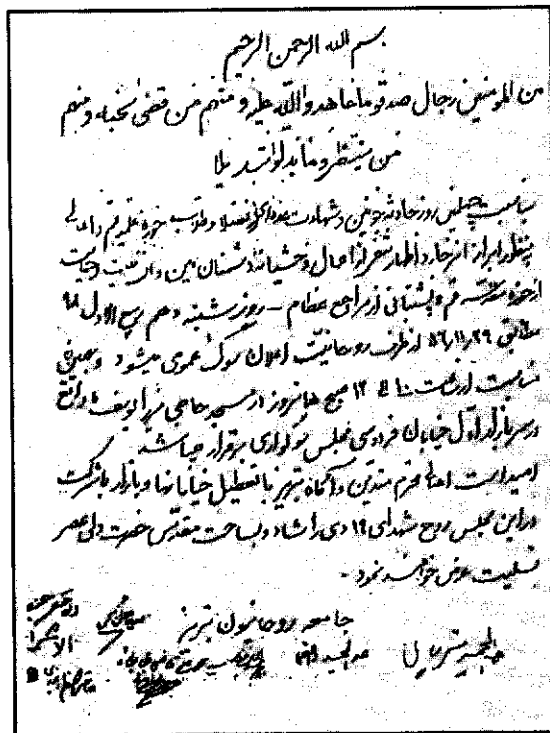 بسم الله الرحمن الرحیم
من المومنین رجال صدقو ما عاهدوالله علیه و منهم من قضی نحبه و منهم
من ینتظر و ما بدلوا تبدیلا
بمناسبت چهلمین روز حادثه خونین و شهادت عده‌ای از فضلا و طلاب حوزه علمیه قم و اهالی
بمنظور ابراز انزجار و اظهار تنفر از اعمال وحشیانه دشمنان دین و انسانیت و حمایت
از حوزه مقدسه قم و پشتیبانی از مراجع عظام - روز شنبه دهم ربیع الاول
مطابق ۵۶٫۱۱٫۲۹ از طرف روحانیت اعلان سوگ عمومی میشود و بهمین
مناسبت از ساعت ۱۰ الی ۱۲ صبح همانروز از مسجد حاجی میرزا یوسف واقع
در سر بازار اول خیابان فردوسی مجلس سوگواری برقرار میباشد
امید است اهالی محترم متدین و آگاه تبریز با تعطیل خیابانها و بازار با شرکت
در این مجلس روح شهدای ۱۹ دی را شاد و بساحت مقدس حضرت ولی عصر
تسلیت عرض خواهند نمود -
جامعه روحانیون تبریز
عبدالحمید شربیانی عبدالحمید